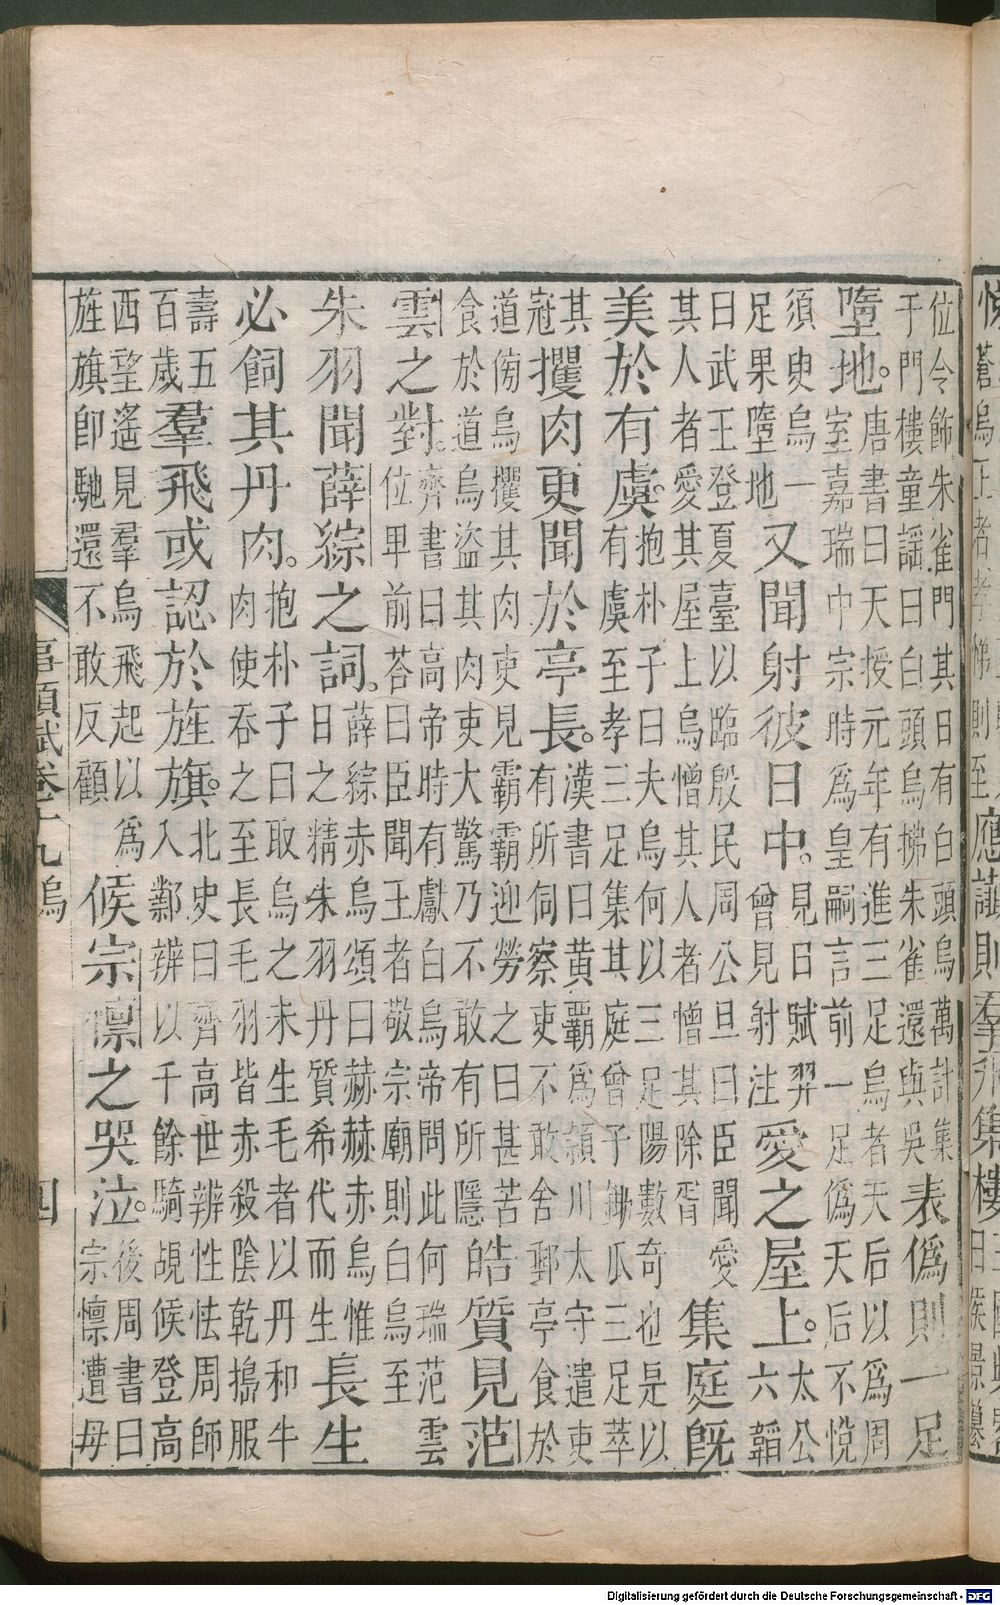 則至應讖則
集樓
位令飾朱雀門其日有白頭烏萬計集
于門樓童謡曰白頭烏拂朱雀還與吳
表僞則一足
墮地。
唐書曰天授元年有進三足烏者天后以爲周
室嘉瑞中宗時爲皇嗣言前一足僞天后不悅
須臾烏一
足果墮地
又聞射彼日中。
見日賦羿
曾見射注
愛之屋上。
太公
六韜
曰武王登夏臺以臨殷民周公旦曰臣聞愛
其人者愛其屋上烏憎其人者憎其除胥
集庭旣
美於有虞。
抱朴子曰夫烏何以三足陽數奇也是以
有虞至孝三足集其庭曾子鋤瓜三足萃
其
冠
攫肉更聞於亭長。
漢書曰黄霸爲潁川太守遣吏
有所伺察吏不敢舍郵亭食於
道傍烏攫其肉吏見霸霸迎勞之曰甚苦
食於道烏盜其肉吏大驚乃不敢有所隱
皓質見范
雲之對。
齊書曰高帝時有獻白烏帝問此何瑞范雲
位甲前荅曰臣聞王者敬宗廟則白烏至
朱羽聞薛綜之詞。
薛綜赤烏頌曰赫赫赤烏惟
日之精朱羽丹質希代而生
長生
必飼其丹肉。
抱朴子曰取烏之未生毛者以丹和牛
肉使吞之至長毛羽皆赤殺陰乾搗服
壽五
百歲
羣飛或認於旌旗。
北史曰齊高世辨性怯周師
入鄴辨以千餘騎覘候登高
西望遙見羣烏飛起以爲
旌旗卽馳還不敢反顧
候宗懍之哭泣。
後周書曰
宗懍遭母
事類賦卷十九 烏 四
Digitalisierung gefördert durch die Deutsche Forschungsgemeinschaft - DFG